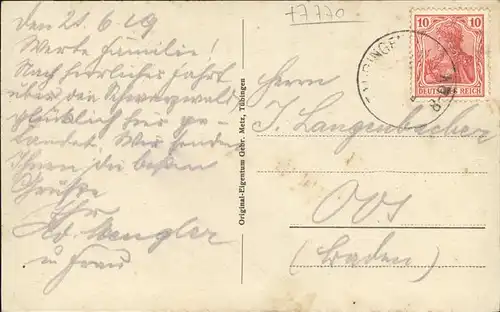 den 21.6.19
Werte Familie!
Nach herrlicher Fahrt
über den Schwarzwald
glücklich hier ge-
landet. Wir senden
Ihnen die besten
Grüße
Ihr
Mengler
u Frau
Original-Eigentum Gebr. Metz, Tübingen
+7770
10 10
DEUTSCHES REICH
Herrn
J. Langenbacher
OOS
(Baden)